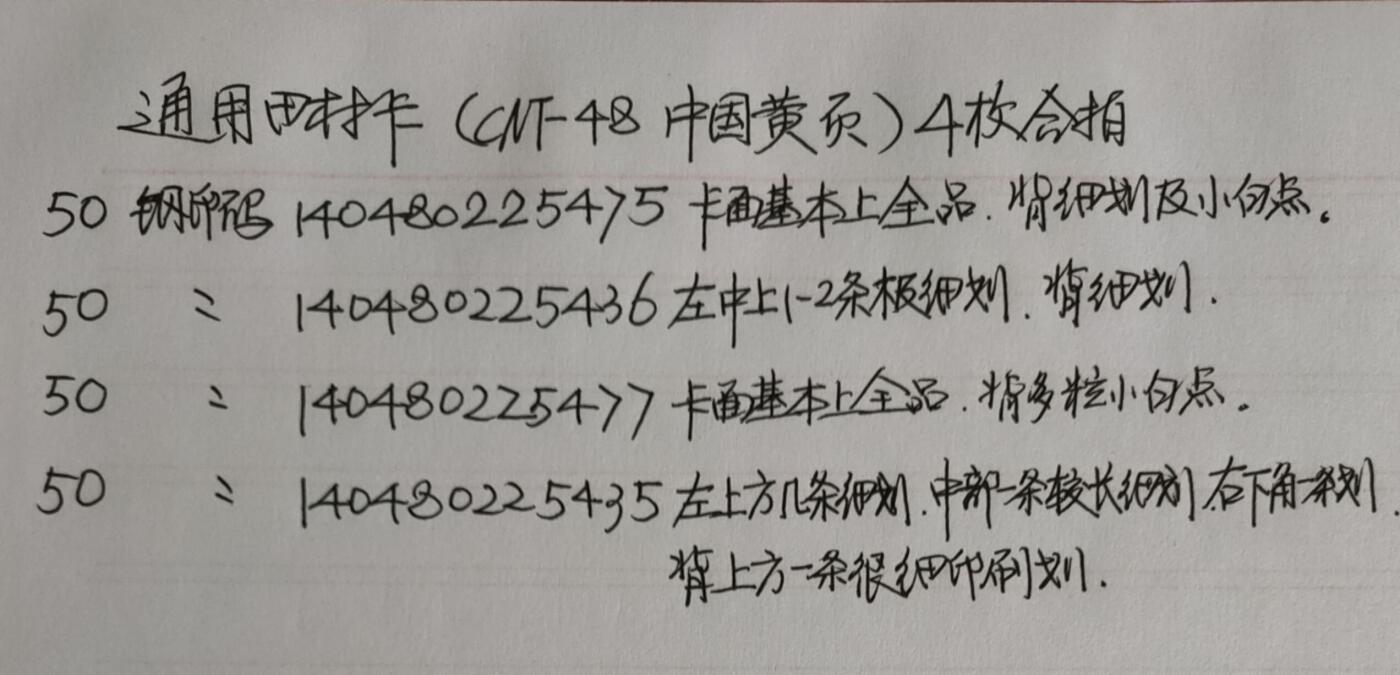 通用田村卡（CNT-48 中国黄页）4枚合拍
50 钢印码 140480225475 卡面基本上全品．背细划及小白点。
50 〃 140480225436 左中上1-2条极细划．背细划．
50 〃 140480225477 卡面基本上全品．背多粒小白点。
50 〃 140480225435 左上方几条细划．中部一条较长细划．右下角一条划．
背上方一条很细印刷划．